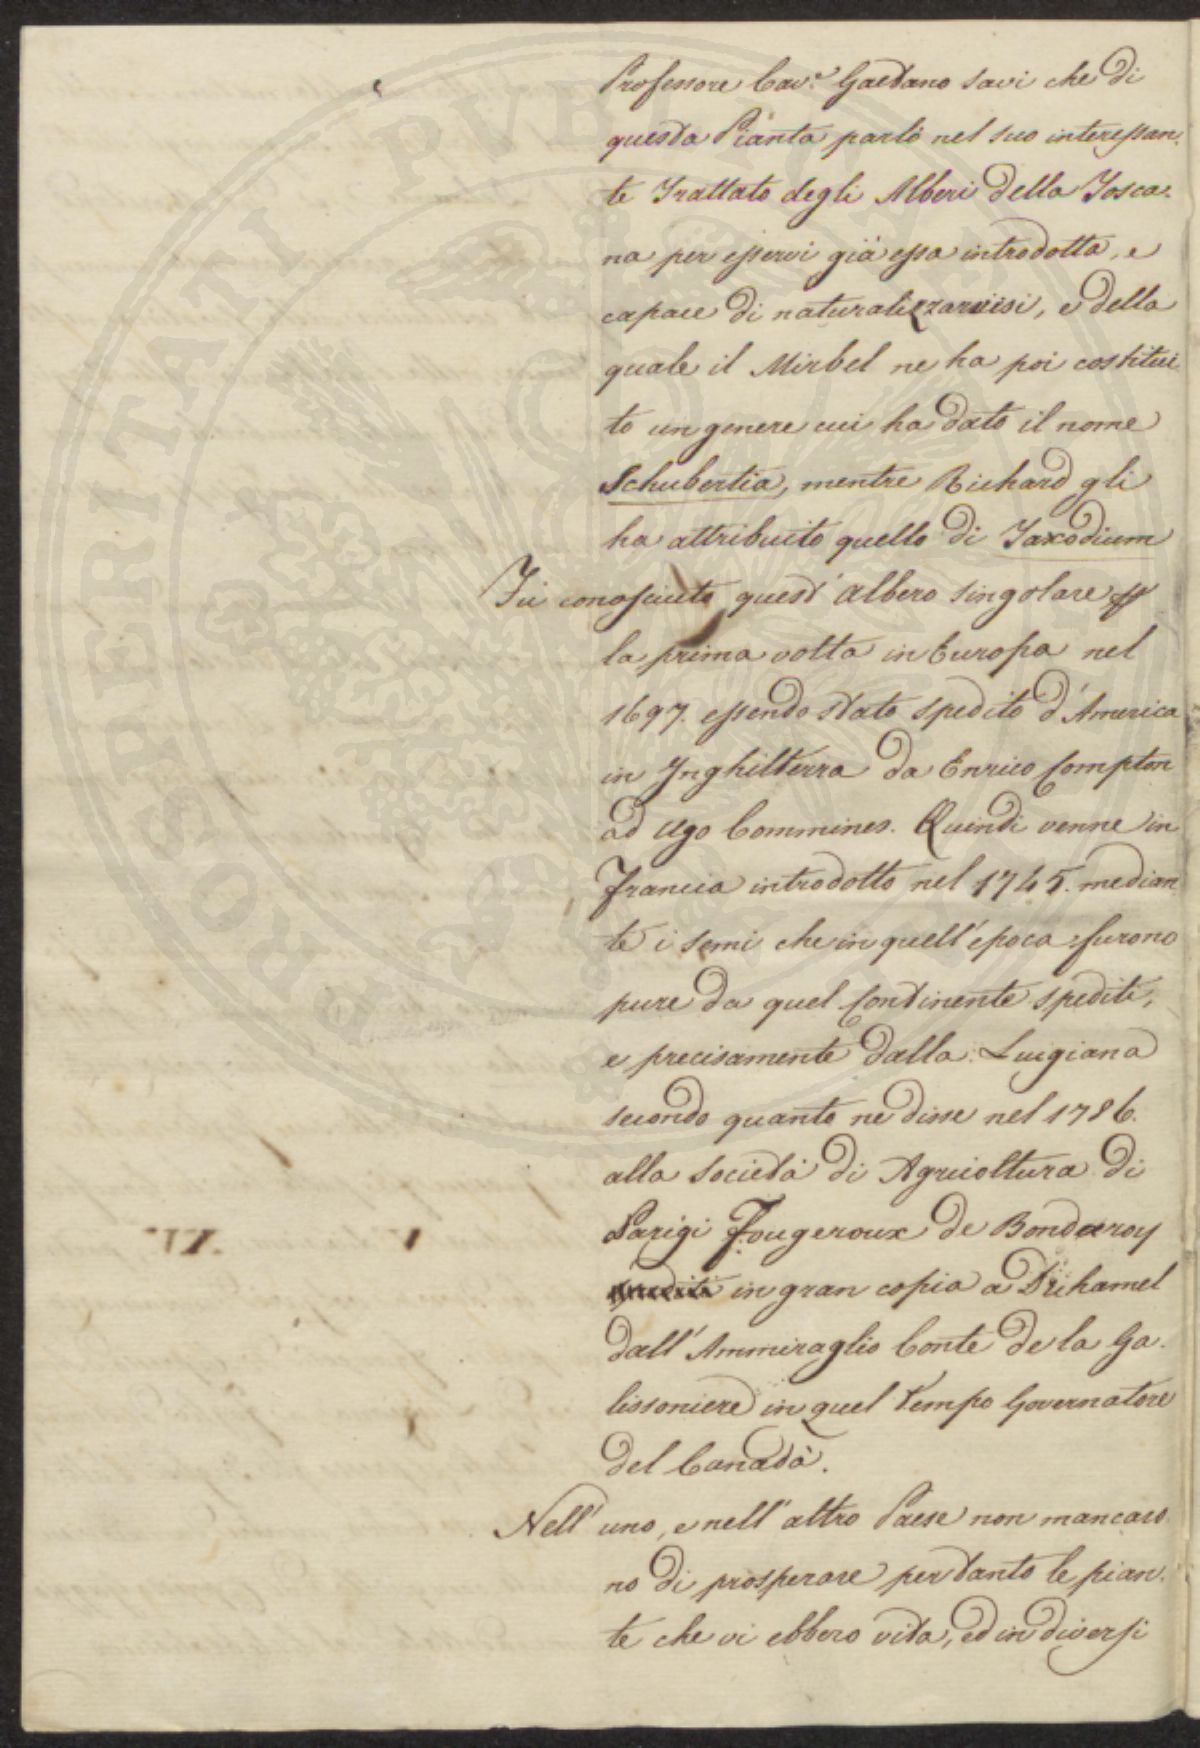 Professore Cav.e Gaetano Savi che di
questa Pianta parlò nel suo interessan-
te Trattato degli Alberi della Tosca-
na per esservi già essa introdotta, e
capace di naturalizzarvisi, e della
quale il Mirbel ne ha poi costitui-
to un genere cui ha dato il nome
Schubertia, mentre Richard gli
ha attribuito quello di Taxodium
Fù conosciuto quest'albero singolare p
la prima volta in Europa nel
1697. essendo stato spedito d'America
in Inghilterra da Enrico Compton
ad Ugo Commines. Quindi venne in
Francia introdotto nel 1745. median-
te i semi che in quell'epoca furono
pure da quel Continente spediti,
e precisamente dalla Luigiana
secondo quanto ne disse nel 1786.
alla Società di Agricoltura di
Parigi Fougeroux de Bondaroy
in gran copia a Duhamel
dall'Ammiraglio Conte de la Ga-
lissoniere in quel tempo Governatore
del Canadà.
Nell'uno, e nell'altro Paese non mancaro-
no di prosperare pertanto le pian-
te che vi ebbero vita, ed in diversi
PROSPERITATI PVBLICAE